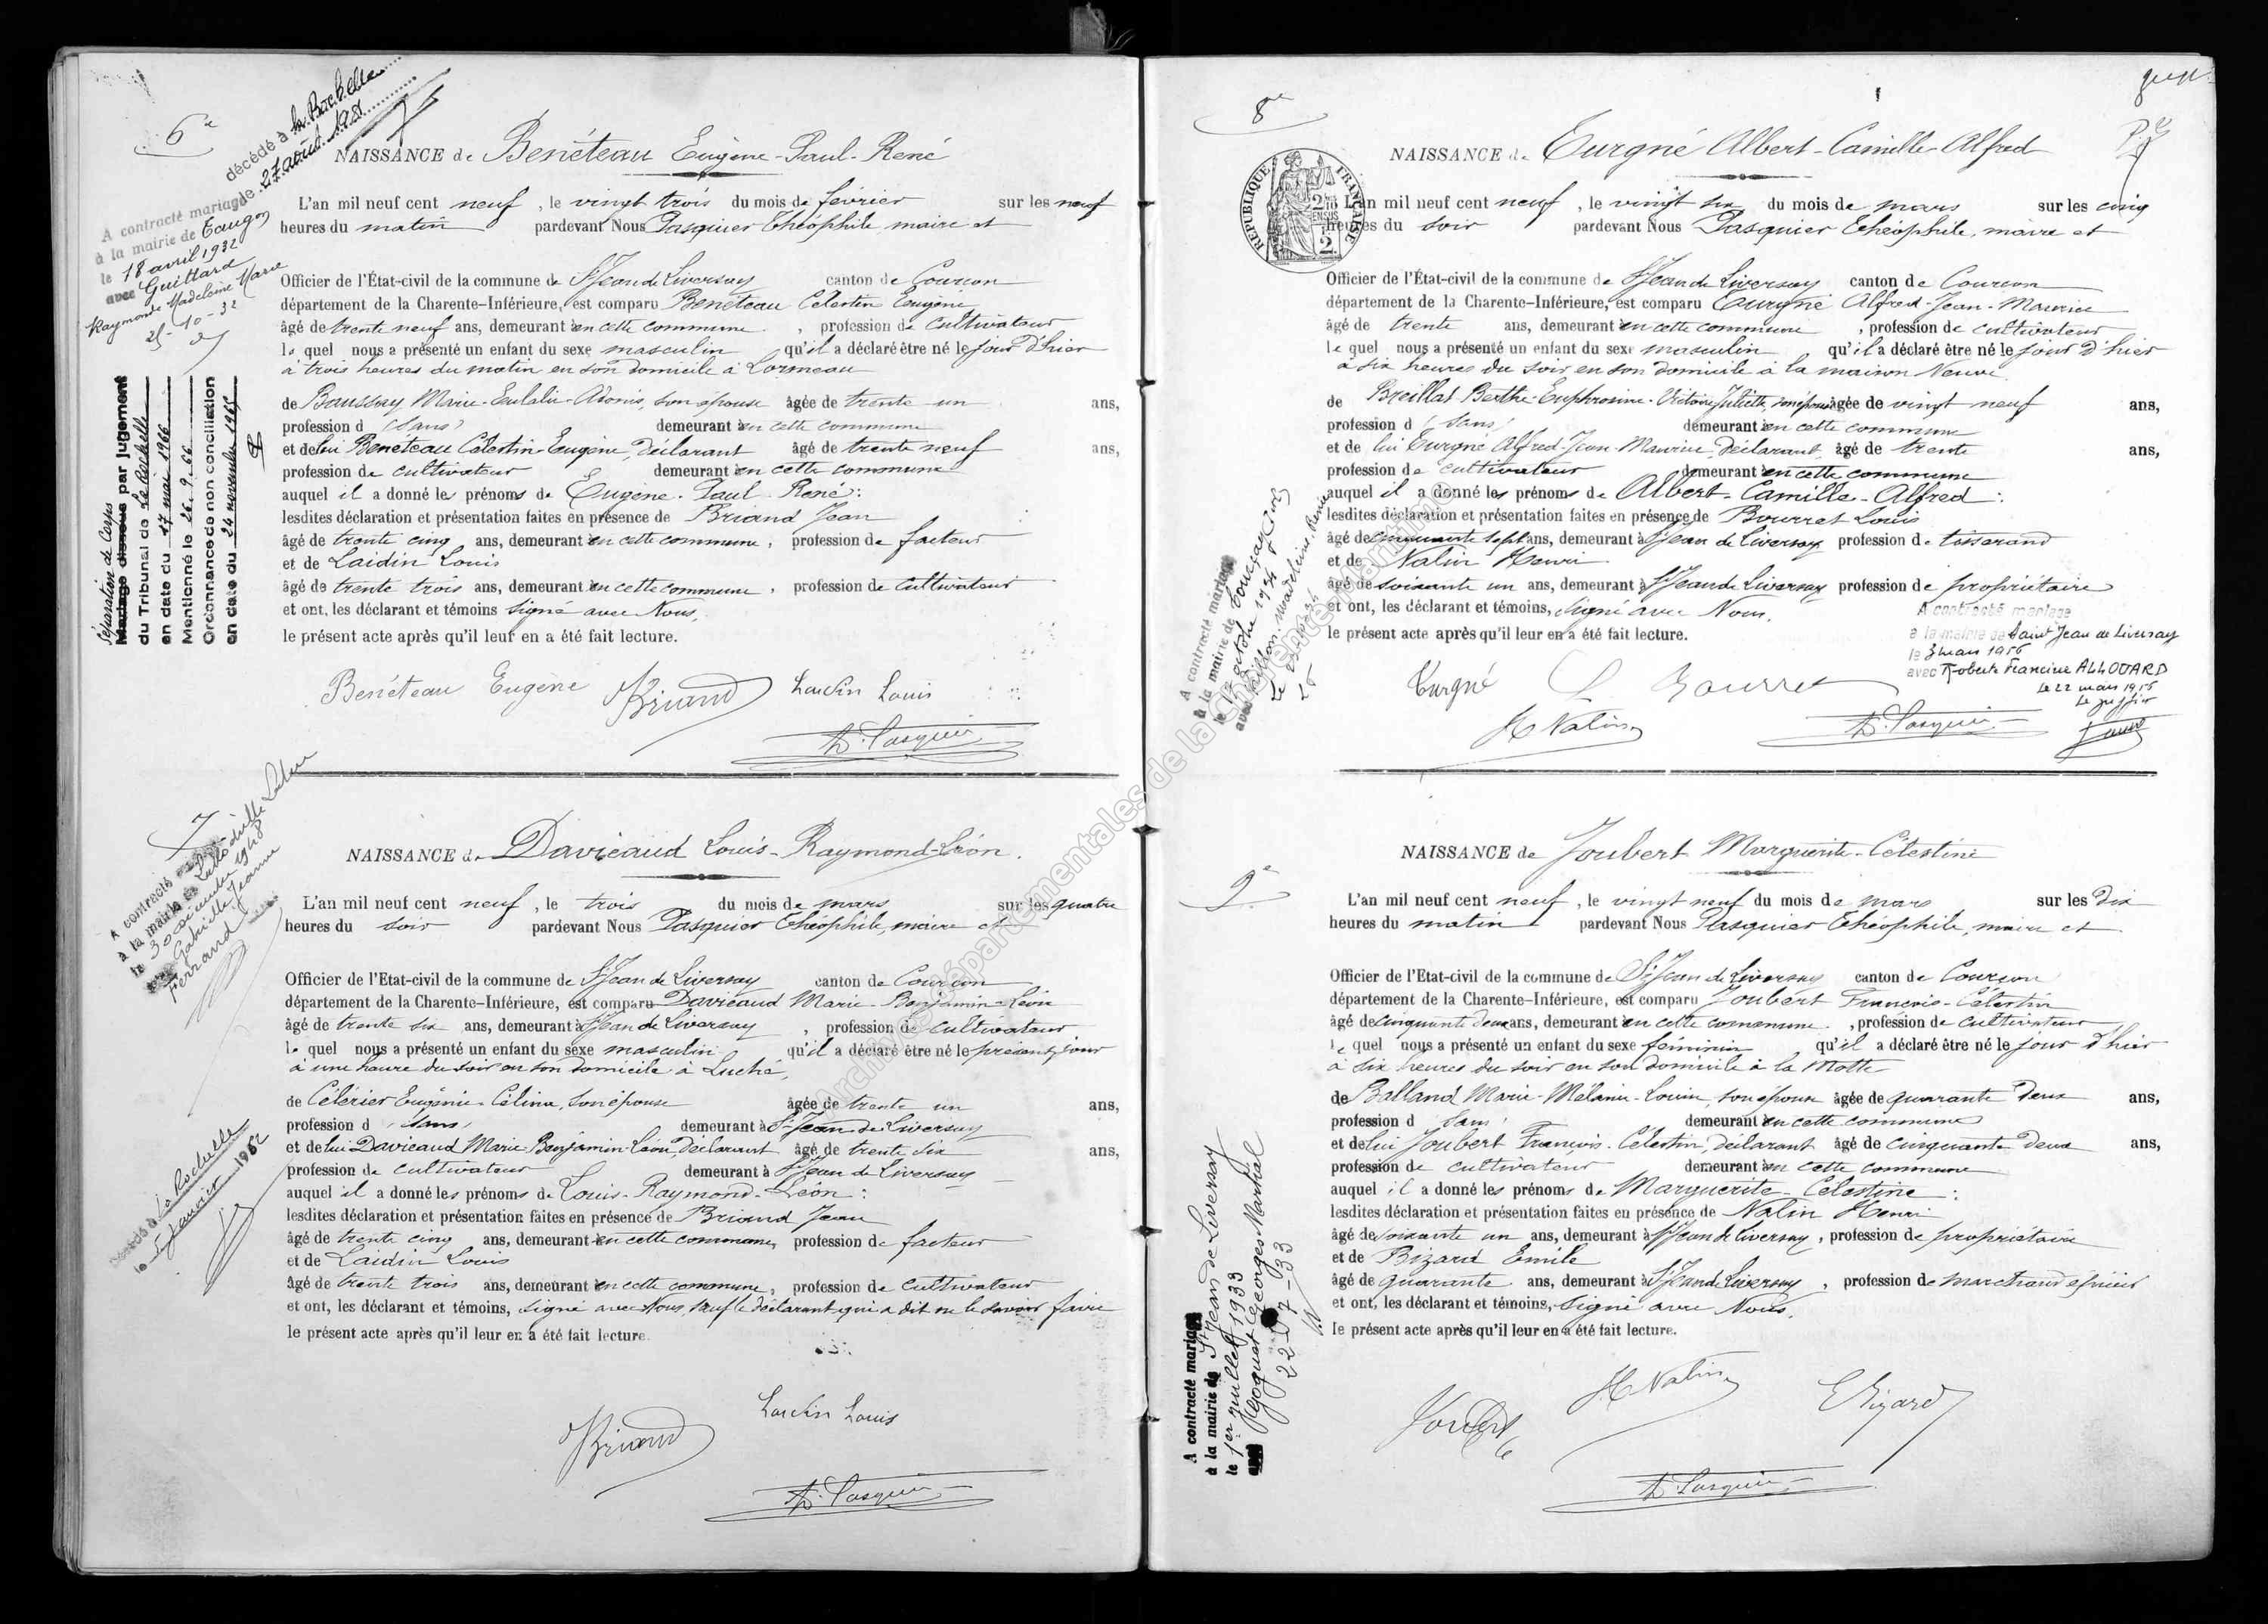 6e
décédé à la Rochelle
le 27 août 1981
A contracté mariage
à la mairie de Taugon
le 18 avril 1932
avec Guittard
Raymonde Madeleine Marie
25-10-32
Séparation de Corps
Mariage dissous par jugement
du Tribunal de La Rochelle
en date du 17 mai 1966
Mentionné le 26.9.66
Ordonnance de non conciliation
en date du 24 novembre 1965
NAISSANCE de Benéteau Eugène-Paul-René
L'an mil neuf cent neuf, le vingt trois du mois de février sur les neuf
heures du matin pardevant Nous Pasquier Théophile, maire et
Officier de l'État-civil de la commune de St Jean de Liversay canton de Courçon
département de la Charente-Inférieure, est comparu Benéteau Célestin Eugène
âgé de trente neuf ans, demeurant en cette commune, profession de cultivateur
lequel nous a présenté un enfant du sexe masculin qu'il a déclaré être né le jour d'hier
à trois heures du matin en son domicile à Lormeau
de Baussay Marie-Eulalie-Adonis, son épouse âgée de trente un ans,
profession d (sans) demeurant en cette commune
et de lui Benéteau Célestin-Eugène, déclarant âgé de trente neuf ans,
profession de cultivateur demeurant en cette commune
auquel il a donné les prénoms de Eugène-Paul-René:
lesdites déclaration et présentation faites en présence de Briand Jean
âgé de trente cinq ans, demeurant en cette commune, profession de facteur
et de Laidin Louis
âgé de trente trois ans, demeurant en cette commune, profession de cultivateur
et ont, les déclarant et témoins signé avec Nous,
le présent acte après qu'il leur en a été fait lecture.
Benéteau Eugène Briand Laidin Louis
Th. Pasquier
7
A contracté mariage
à la mairie de
le 30 décembre 1948
avec Gabrielle Jeanne
Ferrand
Décédé à La Rochelle
le janvier 1982
NAISSANCE de Davieaud Louis-Raymond-Léon.
L'an mil neuf cent neuf, le trois du mois de mars sur les quatre
heures du soir pardevant Nous Pasquier Théophile, maire et
Officier de l'Etat-civil de la commune de St Jean de Liversay canton de Courçon
département de la Charente-Inférieure, est comparu Davieaud Marie-Benjamin-Léon
âgé de trente six ans, demeurant à St Jean de Liversay, profession de cultivateur
lequel nous a présenté un enfant du sexe masculin qu'il a déclaré être né le présent jour
à une heure du soir en son domicile à Luché,
de Célérier Eugénie-Célina, son épouse âgée de trente un ans,
profession d (sans) demeurant à St Jean de Liversay
et de lui Davieaud Marie-Benjamin-Léon, déclarant âgé de trente six ans,
profession de cultivateur demeurant à St Jean de Liversay
auquel il a donné les prénoms de Louis-Raymond-Léon:
lesdites déclaration et présentation faites en présence de Briand Jean
âgé de trente cinq ans, demeurant en cette commune, profession de facteur
et de Laidin Louis
âgé de trente trois ans, demeurant en cette commune, profession de cultivateur
et ont, les déclarant et témoins, signé avec Nous, sauf le déclarant qui a dit ne le savoir faire
le présent acte après qu'il leur en a été fait lecture.
Briand Laidin Louis
Th. Pasquier
8e
RÉPUBLIQUE FRANÇAISE
NAISSANCE de Turgné Albert-Camille-Alfred
L'an mil neuf cent neuf, le vingt six du mois de mars sur les cinq
heures du soir pardevant Nous Pasquier Théophile, maire et
Officier de l'État-civil de la commune de St Jean de Liversay canton de Courçon
département de la Charente-Inférieure, est comparu Turgné Alfred-Jean-Maurice
âgé de trente ans, demeurant en cette commune, profession de cultivateur
lequel nous a présenté un enfant du sexe masculin qu'il a déclaré être né le jour d'hier
à six heures du soir en son domicile à la maison Neuve
de Breillat Berthe-Euphrosine-Victoire Juliette, son épouse âgée de vingt neuf ans,
profession d (sans) demeurant en cette commune
et de lui Turgné Alfred-Jean-Maurice, déclarant âgé de trente ans,
profession de cultivateur demeurant en cette commune
auquel il a donné les prénoms de Albert-Camille-Alfred:
lesdites déclaration et présentation faites en présence de Bourret Louis
âgé de cinquante sept ans, demeurant à St Jean de Liversay profession de tisserand
et de Nalin Henri
âgé de soixante un ans, demeurant à St Jean de Liversay profession de propriétaire
et ont, les déclarant et témoins, signé avec Nous,
le présent acte après qu'il leur en a été fait lecture.
A contracté mariage
à la mairie de
le 17 octobre 1934
avec
A contracté mariage
à la mairie de Saint Jean de Liversay
le 3 mars 1956
avec Roberte Francine ALLOUARD
Le 22 mars 1956
Le greffier
Turgné L. Bourret
H Nalin Th. Pasquier
9e
NAISSANCE de Joubert Marguerite-Célestine
L'an mil neuf cent neuf, le vingt neuf du mois de mars sur les dix
heures du matin pardevant Nous Pasquier Théophile, maire et
Officier de l'Etat-civil de la commune de St Jean de Liversay canton de Courçon
département de la Charente-Inférieure, est comparu Joubert François-Célestin
âgé de cinquante deux ans, demeurant en cette commune, profession de cultivateur
lequel nous a présenté un enfant du sexe féminin qu'il a déclaré être né le jour d'hier
à six heures du soir en son domicile à la Motte
de Balland Marie-Mélanie-Louise, son épouse âgée de quarante deux ans,
profession d (sans) demeurant en cette commune
et de lui Joubert François-Célestin, déclarant âgé de cinquante deux ans,
profession de cultivateur demeurant en cette commune
auquel il a donné les prénoms de Marguerite-Célestine:
lesdites déclaration et présentation faites en présence de Nalin Henri
âgé de soixante un ans, demeurant à St Jean de Liversay, profession de propriétaire
et de Bizard Emile
âgé de quarante ans, demeurant à St Jean de Liversay, profession de marchand épicier
et ont, les déclarant et témoins, signé avec Nous,
le présent acte après qu'il leur en a été fait lecture.
A contracté mariage
à la mairie de St Jean de Liversay
le 1er juillet 1933
avec Georges Martial
22-7-33
Joubert H Nalin E Bizard
Th. Pasquier
Archives départementales de la Charente-Maritime